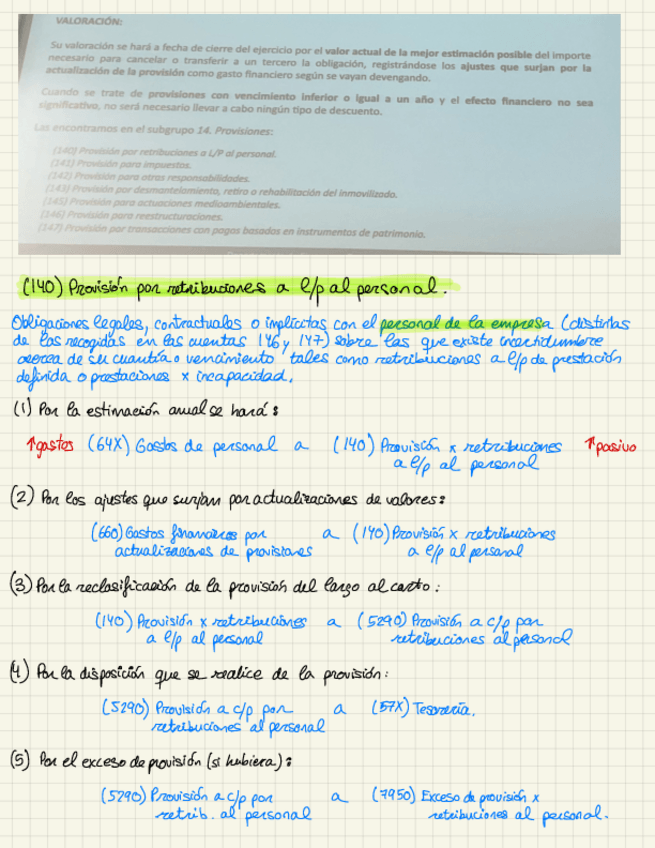 VALORACIÓN:
Su valoración se hará a fecha de cierre del ejercicio por el valor actual de la mejor estimación posible del importe
necesario para cancelar o transferir a un tercero la obligación, registrándose los ajustes que surjan por la
actualización de la provisión como gasto financiero según se vayan devengando.
Cuando se trate de provisiones con vencimiento inferior o igual a un año y el efecto financiero no sea
significativo, no será necesario llevar a cabo ningún tipo de descuento.
Las encontramos en el subgrupo 14. Provisiones:
(140) Provisión por retribuciones a L/P al personal.
(141) Provisión para impuestos.
(142) Provisión para otras responsabilidades.
(143) Provisión por desmantelamiento, retiro o rehabilitación del inmovilizado.
(145) Provisión para actuaciones medioambientales.
(146) Provisión para reestructuraciones.
(147) Provisión por transacciones con pagos basados en instrumentos de patrimonio.
(140) Provisión por retribuciones a l/p al personal.
Obligaciones legales, contractuales o implícitas con el personal de la empresa (distintas
de las recogidas en las cuentas 146 y 147) sobre las que existe incertidumbre
acerca de su cuantía o vencimiento, tales como retribuciones a l/p de prestación
definida o prestaciones x incapacidad.
(1) Por la estimación anual se hará:
↑gastos (64X) Gastos de personal a (140) Provisión x retribuciones ↑pasivo
a l/p al personal
(2) Por los ajustes que surjan por actualizaciones de valores:
(660) Gastos financieros por a (140) Provisión x retribuciones
actualizaciones de provisiones a l/p al personal
(3) Por la reclasificación de la provisión del largo al corto:
(140) Provisión x retribuciones a (5290) Provisión a c/p por
a l/p al personal retribuciones al personal
(4) Por la disposición que se realice de la provisión:
(5290) Provisión a c/p por a (57X) Tesorería.
retribuciones al personal
(5) Por el exceso de provisión (si hubiera):
(5290) Provisión a c/p por a (7950) Exceso de provisión x
retrib. al personal retribuciones al personal.